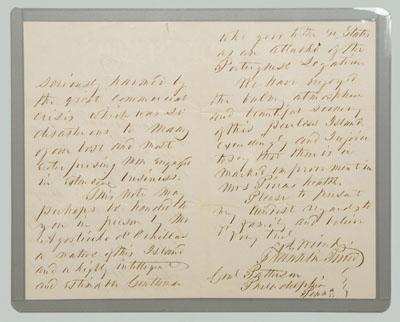 seriously harmed by
the great commercial
crisis which was so
disastrous to many
of our best and most
enterprising men engaged
in extensive business.
This note may
perhaps be handed to
you in person by Mr
a native of this Island
and a highly intelligent
and estimable Gentleman
who goes to the U. States
as an attaché of the
Portuguese Legation.
We have enjoyed
the balmy atmosphere
and beautiful scenery
of this peerless Island
exceedingly and I rejoice
to say that there is a
marked improvement in
Mrs Pierce's health.
Please to present
my kindest regards to
yr family and believe
me
Yr friend
Franklin Pierce
Genl Patterson
Philadelphia
Penna